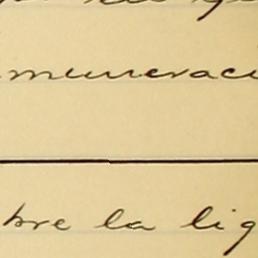 muneraci
bre la lig